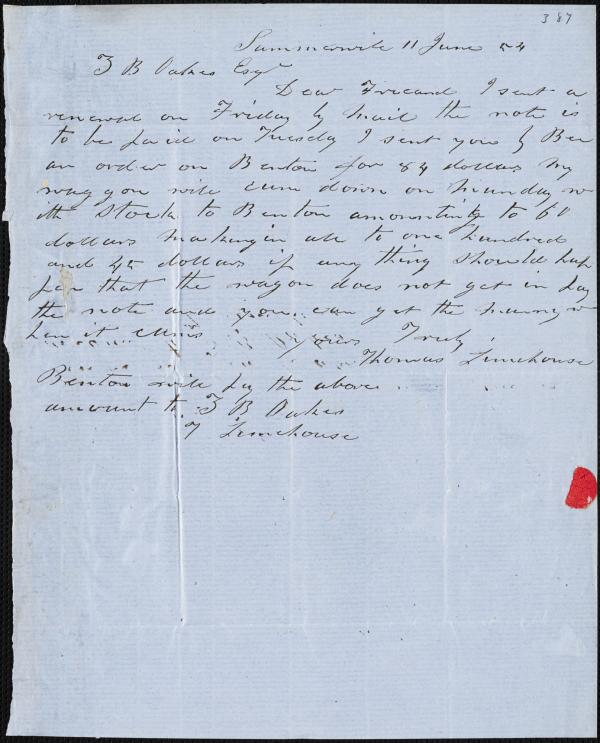 387
Summervile 11 June 54
Z B Oakes Esqr
Dear Freand I sent a
renewal on Friday by mail the note is
to be paid on Tuesday I sent you by Ben
an order on Benton for 84 dollars My
waggon wile cum down on Munday w
ith Stock to Benton amounting to 61
dollars making in all to one hundred
and 45 dollars if any thing should hap
pen that the wagon does not get in pay
the note and you can get the munny w
hen it cums
yours Truly
Thomas Limehouse
Benton wile pay the above
amount to Z B Oakes
T Limehouse